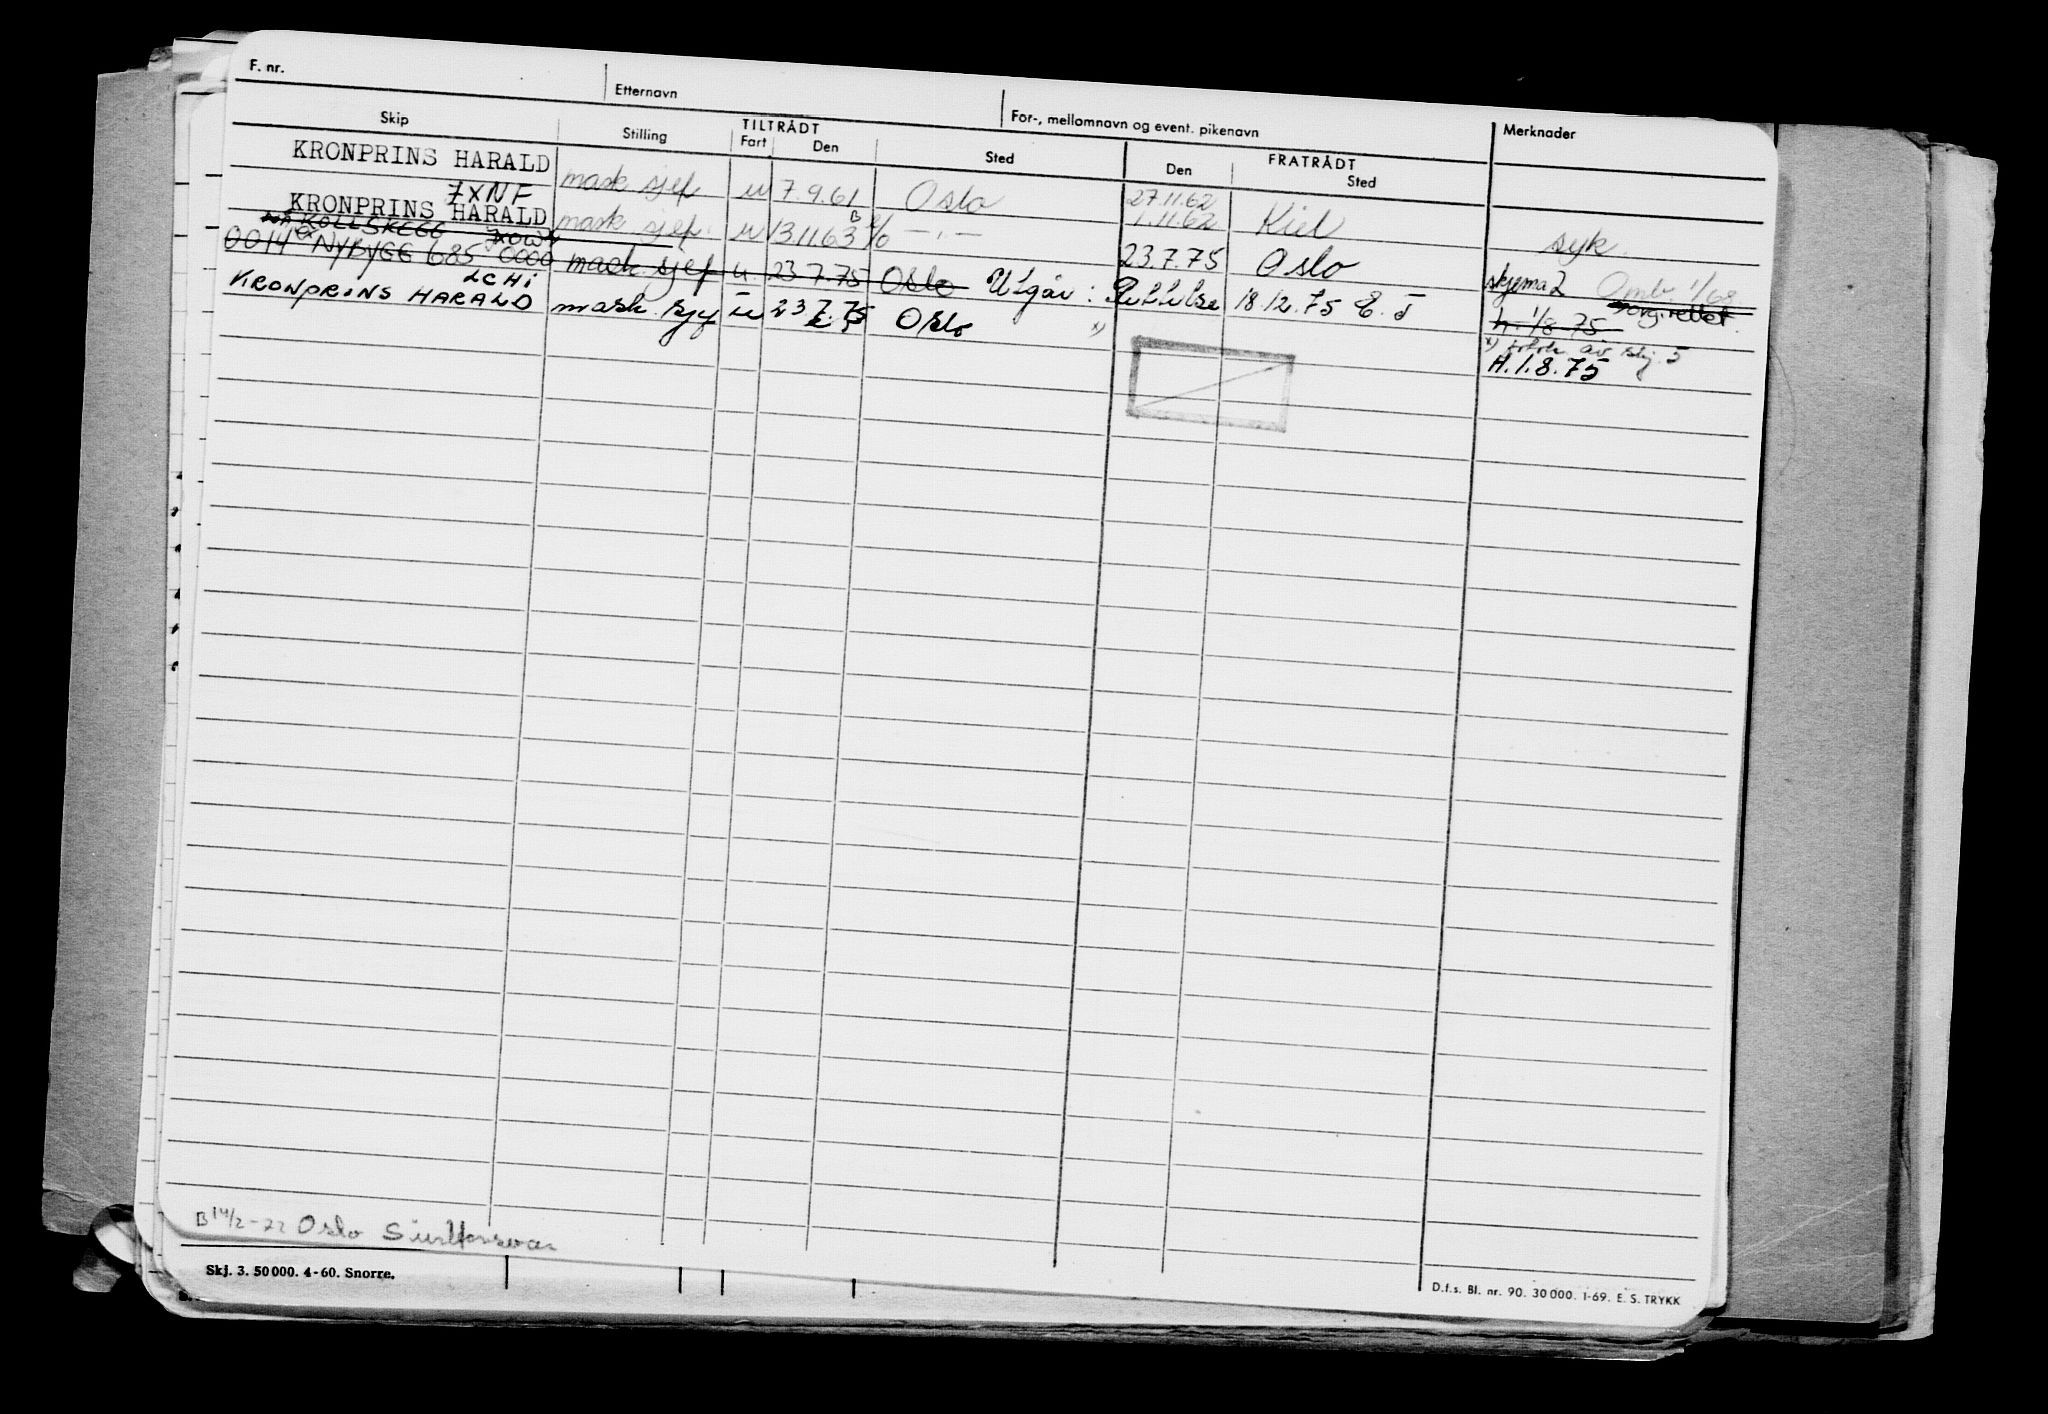 F. nr.
Etternavn
For-, mellomnavn og event. pikenavn
Merknader
Skip
Stilling
TILTRÅDT
Fart
Den
Sted
FRATRÅDT
Den
Sted
KRONPRINS HARALD mask sjef u 7.9.61 Oslo 27.11.62
JXNF
KRONPRINS HARALD mask sjef. u 13.11.63 B % — " — 1.11.62 Kiel syk.
nå KOLLSKEGG JXOW
0014 NYBYGG 685 0000 mask. sjef u. 23.7.75 Oslo 23.7.75 Oslo skjema 2 Omb. 1/68.
LCHI
KRONPRINS HARALD mask. sjef u 23.7.75 Oslo Utgår: Rettelse 18.12.75 E.J
h. 1/8-75
x)
x) av skj. 5
H.1.8.75
B 14/2-72 Oslo Sivilforsvar
Skj. 3. 50 000. 4-60. Snorre.
D.f.s. Bl. nr. 90. 30 000. 1-69. E. S. TRYKK